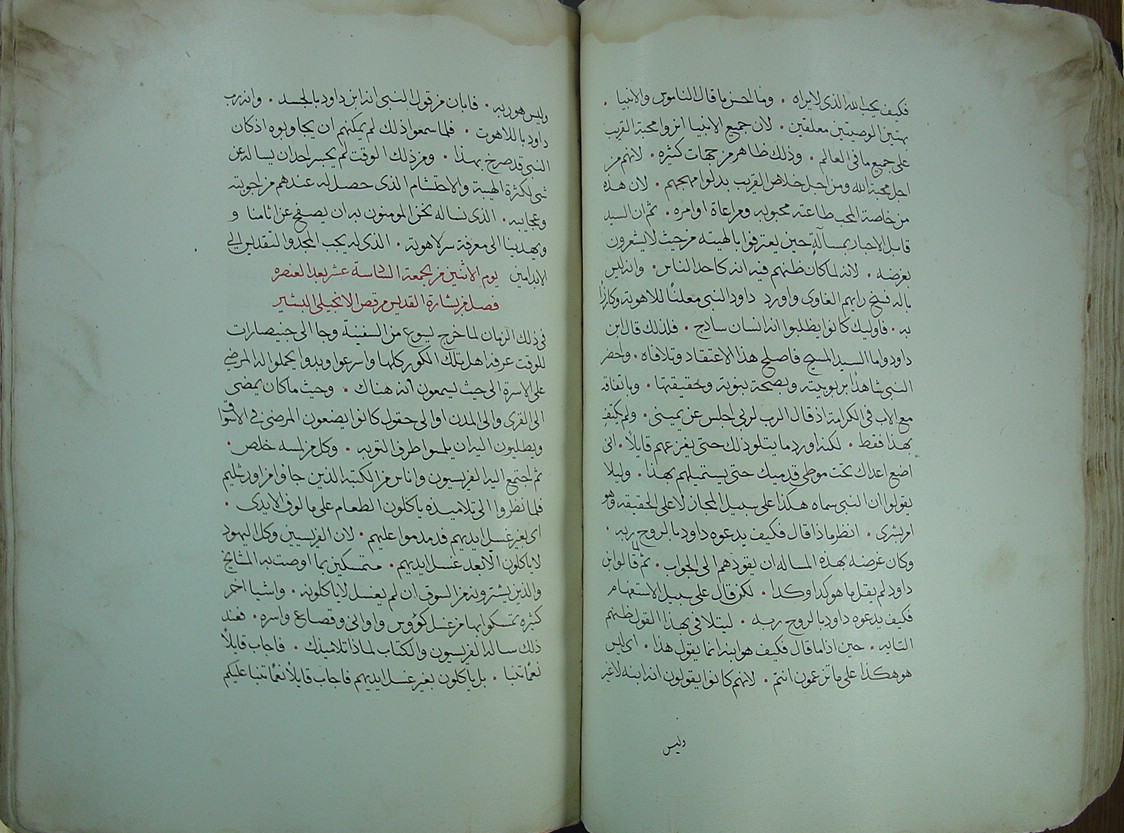 فكيف يحب الله الذي لا يراه . وما احسن ما قال الناموس والانبيا .
بهتين الوصيتين معلقين . لان جميع الانبيا اثروا محبة القريب
على جميع ما في العالم . وذلك ظاهر من جهات كثره . لانهم من
اجل محبة الله ومن اجل خلاص القريب بدلوا مهجهم . لان هذه
من خاصة المحب طاعته محبوبه ومراعاة اوامره . ثم ان السيد
قابل الاحبار بمسالة حين يعترفوا بالهيته من حيث لا يشعرون
بغرضه . لانه لما كان ظنهم فيه انه كاحد الناس . وانه ليس
باله فسخ رايهم الغاوي واورد داود النبي معلنا للاهوته وكارزا
به . فاوليك كانوا يظنوا انه انسان سادج . فلذلك قال ابن
داود واما السيد المسيح فاصلح هذا الاعتقاد وتلافاه . واحضر
النبي شاهدا بربوبيته وبصحة بنوته وحقيقتها . وباتفاقه
مع الاب في الكرامة اذ قال الرب لربي اجلس عن يميني . ولم يكتف
بهذا فقط . لكنه اورد ما يتلو ذلك حتى يفزعهم قايلا . اني
اضع اعداك تحت موطي قدميك حتى يستميلهم بهذا . وليلا
يقولوا ان النبي سماه هكذا على سبيل المجاز لا على الحقيقه وهو
امر بشري . انظر ماذا قال فكيف يدعوه داود بالروح ربه .
وكان غرضه بهذه المساله ان يقودهم الى الجواب . ثم قالوا ابن
داود لم يقل ما هو كذا وكذا . لكن قال على سبيل الاستفهام
فكيف يدعوه داود بالروح ربه . ليتلافى بهذا القول ظنهم
التايه . حين اذ ما قال فكيف هو ابنه انما يقول هذا . اي ليس
هو هكذا على ما تزعمون انتم . لانهم كانوا يقولون انه ابنه لا غير
وليس
وليس هو ربه . فابان من قول النبي انه ابن داود بالجسد . وانه رب
داود باللاهوت . فلما سمعوا ذلك لم يمكنهم ان يجاوبوه اذ كان
النبي قد صرخ بهذا . ومن ذلك الوقت لم يجسر احد ان يساله عن
شي لكثرة الهيبة والاحتشام الذي حصل له عندهم من اجوبته
وعجايبه . الذي نساله نحن المومنون به ان يصفح عن اثامنا و
ويهدينا الى معرفة سر لاهوته . الذي له يجب المجد والتقديس الى
الابد امين يوم الاثنين من الجمعة السادسة عشر بعد العنصره
فصل من بشارة القديس مرقص الانجيلي البشير
في ذلك الزمان لما خرج ليسوع من السفينة وجا الى جنيصارات
للوقت عرفه اهل تلك الكور كلها واسرعوا وبدوا يحملوا له المرضى
على الاسرة الى حيث يسمعون انه هناك . وحيث ما كان يمضي
الى القرى والى المدن او الى حقول كانوا يضعون المرضى في الاسواق
ويطلبون اليه ان يلمسوا طرف التوبه . وكل من لمسه خلص .
ثم اجتمع اليه الفريسيون واناس من الكتبه الذين جاوا من اورشليم
فلما نظروا الى تلاميذه ياكلون الطعام على مالوف الايدي .
اي بغير غسل ايديهم فدمدموا عليهم . لان الفريسيين وكل اليهود
لا ياكلون الا بعد غسل ايديهم . متمسكين بما اوصت به المشايخ
والذين يشترونه من السوق ان لم يغسل لا ياكلونه . واشيا اخر
كثيره تمسكوا بها من غسل كووس واواني وقصاع واسره . فعند
ذلك ساله الفريسيون والكتاب لماذا تلاميذك . فاجاب قايلا
نعما تنبا . بل ياكلون بغير غسل ايديهم فاجاب قايلا نعما تنبا عليكم